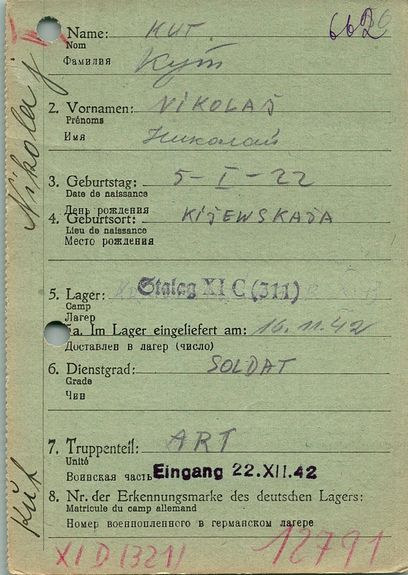 6620
1. Name: KUT.
Nom
Фамилия Кут
2. Vornamen: NIKOLAJ
Prénoms
Имя Николай
3. Geburtstag: 5-I-22
Date de naissance
День рождения
4. Geburtsort: KIJEWSKAJA
Lieu de naissance
Место рождения
5. Lager: Stalag XI C (311)
Camp
Лагер
5a. Im Lager eingeliefert am: 16.11.42
Доставлен в лагер (число)
6. Dienstgrad: SOLDAT
Grade
Чин
7. Truppenteil: ART
Unité
Воинская часть Eingang 22.XII.42
8. Nr. der Erkennungsmarke des deutschen Lagers:
Matricule du camp allemand
Номер военнопленного в германском лагере
XI D (321) 12791
Kut Nikolaj